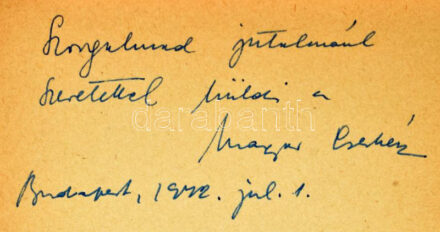 Szorgalmad jutalmául
szeretettel küldi a
darabanth
Magyar Cserkész
Budapest, 1942. júl. 1.